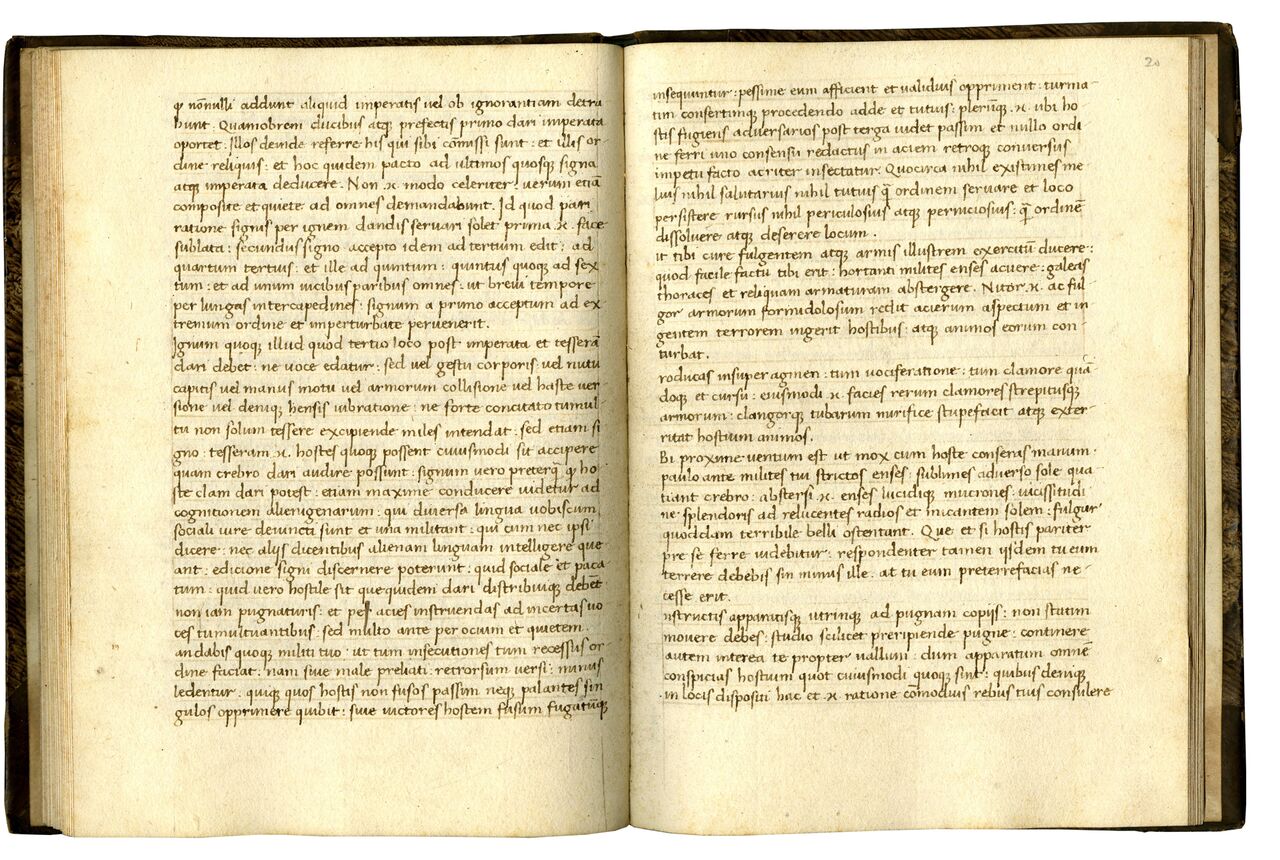 q̨ nōnulli addunt aliquid imperatis uel ob ignorantiam detra
hunt. Quamobrem ducibus atq; prefectis primo dari imperata
oportet. Illos deinde referre his qui sibi comissi sunt: et illis or-
dine reliquis: et hoc quidem pacto ad ultimos quosq; signa
atq; imperata deducere. Non .n. modo celeriter: uerum etiā
composite et quiete ad omnes demandabunt. Id quod pari
ratione signis per ignem dandis seruari solet prima .n. face
sublata: secundus signo accepto idem ad tertium edit: ad
quartum tertius: et ille ad quintum: quintus quoq; ad sex
tum: et ad unum uicibus paribus omnes: ut breui tempore
per lungas intercapedines: signum a primo acceptum ad ex
tremum ordine et imperturbate peruenerit.
Ignum quoq; illud quod tertio loco post imperata et tesserā
dari debet: ne uoce edatur: sed uel gestu corporis: uel nutu
capitis uel manus motu uel armorum collisione uel haste uer
sione uel deniq; hensis uibratione: ne forte concitato tumul-
tu non solum tessere excipiende miles intendat: sed etiam si
gno: tesseram .n. hostes quoq; possent cuiusmodi sit accipere
quam crebro dari audire possunt: signum uero preterq̄ q̨ ho
ste clam dari potest: etiam maxime conducere uidetur ad
cognitionem alienigenarum: qui diuersa lingua uobiscum
sociali iure deuincti sunt et una militant: qui cum nec ipsi
dicere: nec alijs dicentibus alienam linguam intelligere que
ant: edicione signi discernere poterunt: quid sociale et paca
tum: quid uero hostile sit que quidem dari distribuiq; debēt
non iam pugnaturis: et per acies instruendas ad incertas uo
ces tumultuantibus: sed multo ante per ocium et quietem.
andabis quoq; militi tuo: ut tum insecutiones tum recessus or
dine faciat: nam siue male preliati: retrorsum uersi: minus
ledentur: quiq; quos hostis non fusos passim neq; palantes sin
gulos opprimere quibit: siue uictores hostem fusum fugatūq;
20
insequuntur: pessime eum afficient et ualidius oppriment: turma
tim consertimq; procedendo adde et tutius: plerūq; .n. ubi ho-
stis fugiens aduersarios post terga uidet passim et nullo ordi
ne ferri uno consensu redactus in aciem retroq; conuersus
impetu facto acriter insectatur. Quocirca nihil existimes me
lius nihil salutarius nihil tutius q̄ ordinem seruare et loco
persistere rursus nihil periculosius atq; perniciosius: q̄ ordinē
dissoluere atq; deserere locum.
it tibi cure fulgentem atq; armis illustrem exercitū ducere:
quod facile factu tibi erit: hortanti milites enses acuere: galeas
thoraces et reliquam armaturam abstergere. Nitor .n. ac ful-
gor armorum formidolosum reddit acierum aspectum et in
gentem terrorem ingerit hostibus: atq; animos eorum con-
turbat.
roducas insuper agmen: tum uociferatione: tum clamore quā
doq; et cursu: eiusmodi .n. facies rerum clamores strepitusq;
armorum: clangorq; tubarum mirifice stupefacit atq; exter-
ritat hostium animos.
Bi proxime uentum est ut mox cum hoste conseras manum.
paulo ante milites tui strictos enses: sublimes aduerso sole qua
tiant crebro: abstersi .n. enses lucidiq; mucrones: uicissitudi
ne splendoris ad relucentes radios et micantem solem: fulgur
quoddam terribile belli ostentant. Que et si hostis pariter
pre se ferre uidebitur: respondenter tamen ijsdem tu eum
terrere debebis sin minus ille. at tu eum preterrefacias ne-
cesse erit.
nstructis apparatisq; utrinq; ad pugnam copijs: non statim
mouere debes: studio scilicet preripiende pugne: continere
autem interea te propter uallum: dum apparatum omnē
conspicias hostium quot cuiusmodi quoq; sint: quibus deniq;
in locis dispositi hac et .n. ratione comodius rebus tuis consulere